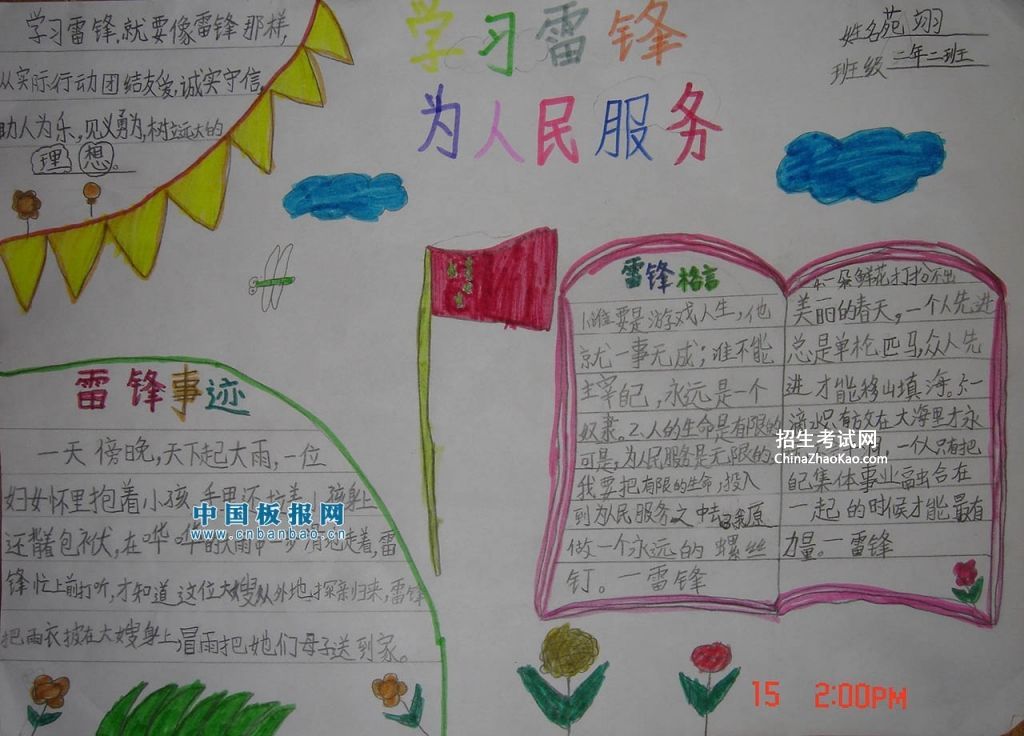 学习雷锋
为人民服务
姓名苑翊
班级二年二班
学习雷锋,就要像雷锋那样,
从实际行动团结友爱,诚实守信,
助人为乐,见义勇为,树远大的
理想。
雷锋事迹
一天傍晚,天下起大雨,一位
妇女怀里抱着小孩,手里还拉着小孩身上
还背着包袱,在哗哗的大雨中一步
走着,雷
锋忙上前打听,才知道这位大嫂从外地探亲归来,雷锋
把雨衣披在大嫂身上,冒雨把她们母子送到家。
雷锋格言
1.谁要是游戏人生,他
就一事无成;谁不能
主宰自己,永远是一个
奴隶。2.人的生命是有限的
可是,为人民服务是无限的
我要把有限的生命,投入
到为民服务之中去3.
做一个永远的螺丝
钉。一雷锋
4.一朵鲜花打扮不出
美丽的春天,一个人先进
总是单枪匹马,众人先
进才能移山填海。5.一
滴水只有放在大海里才永
一个人只有把
自己集体事业融合在
一起的时候才能最有
力量。一雷锋
招生考试网
ChinaZhaoKao.com
中国板报网
www.cnbanbao.cn
15 2:00PM